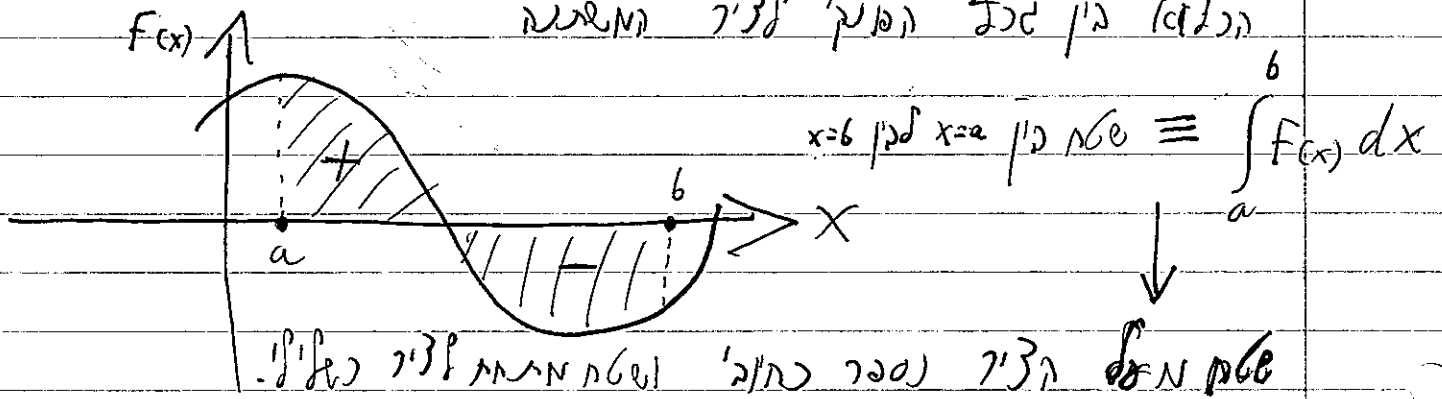 הכלוא בין גרף הפונק' לציר המשתנה
F(x)
∫ₐᵇ F(x) dx ≡ שטח בין x=a לבין x=b
+
b
−
a
X
שטח מעל הציר נספר כחיובי ושטח מתחת לציר כשלילי.